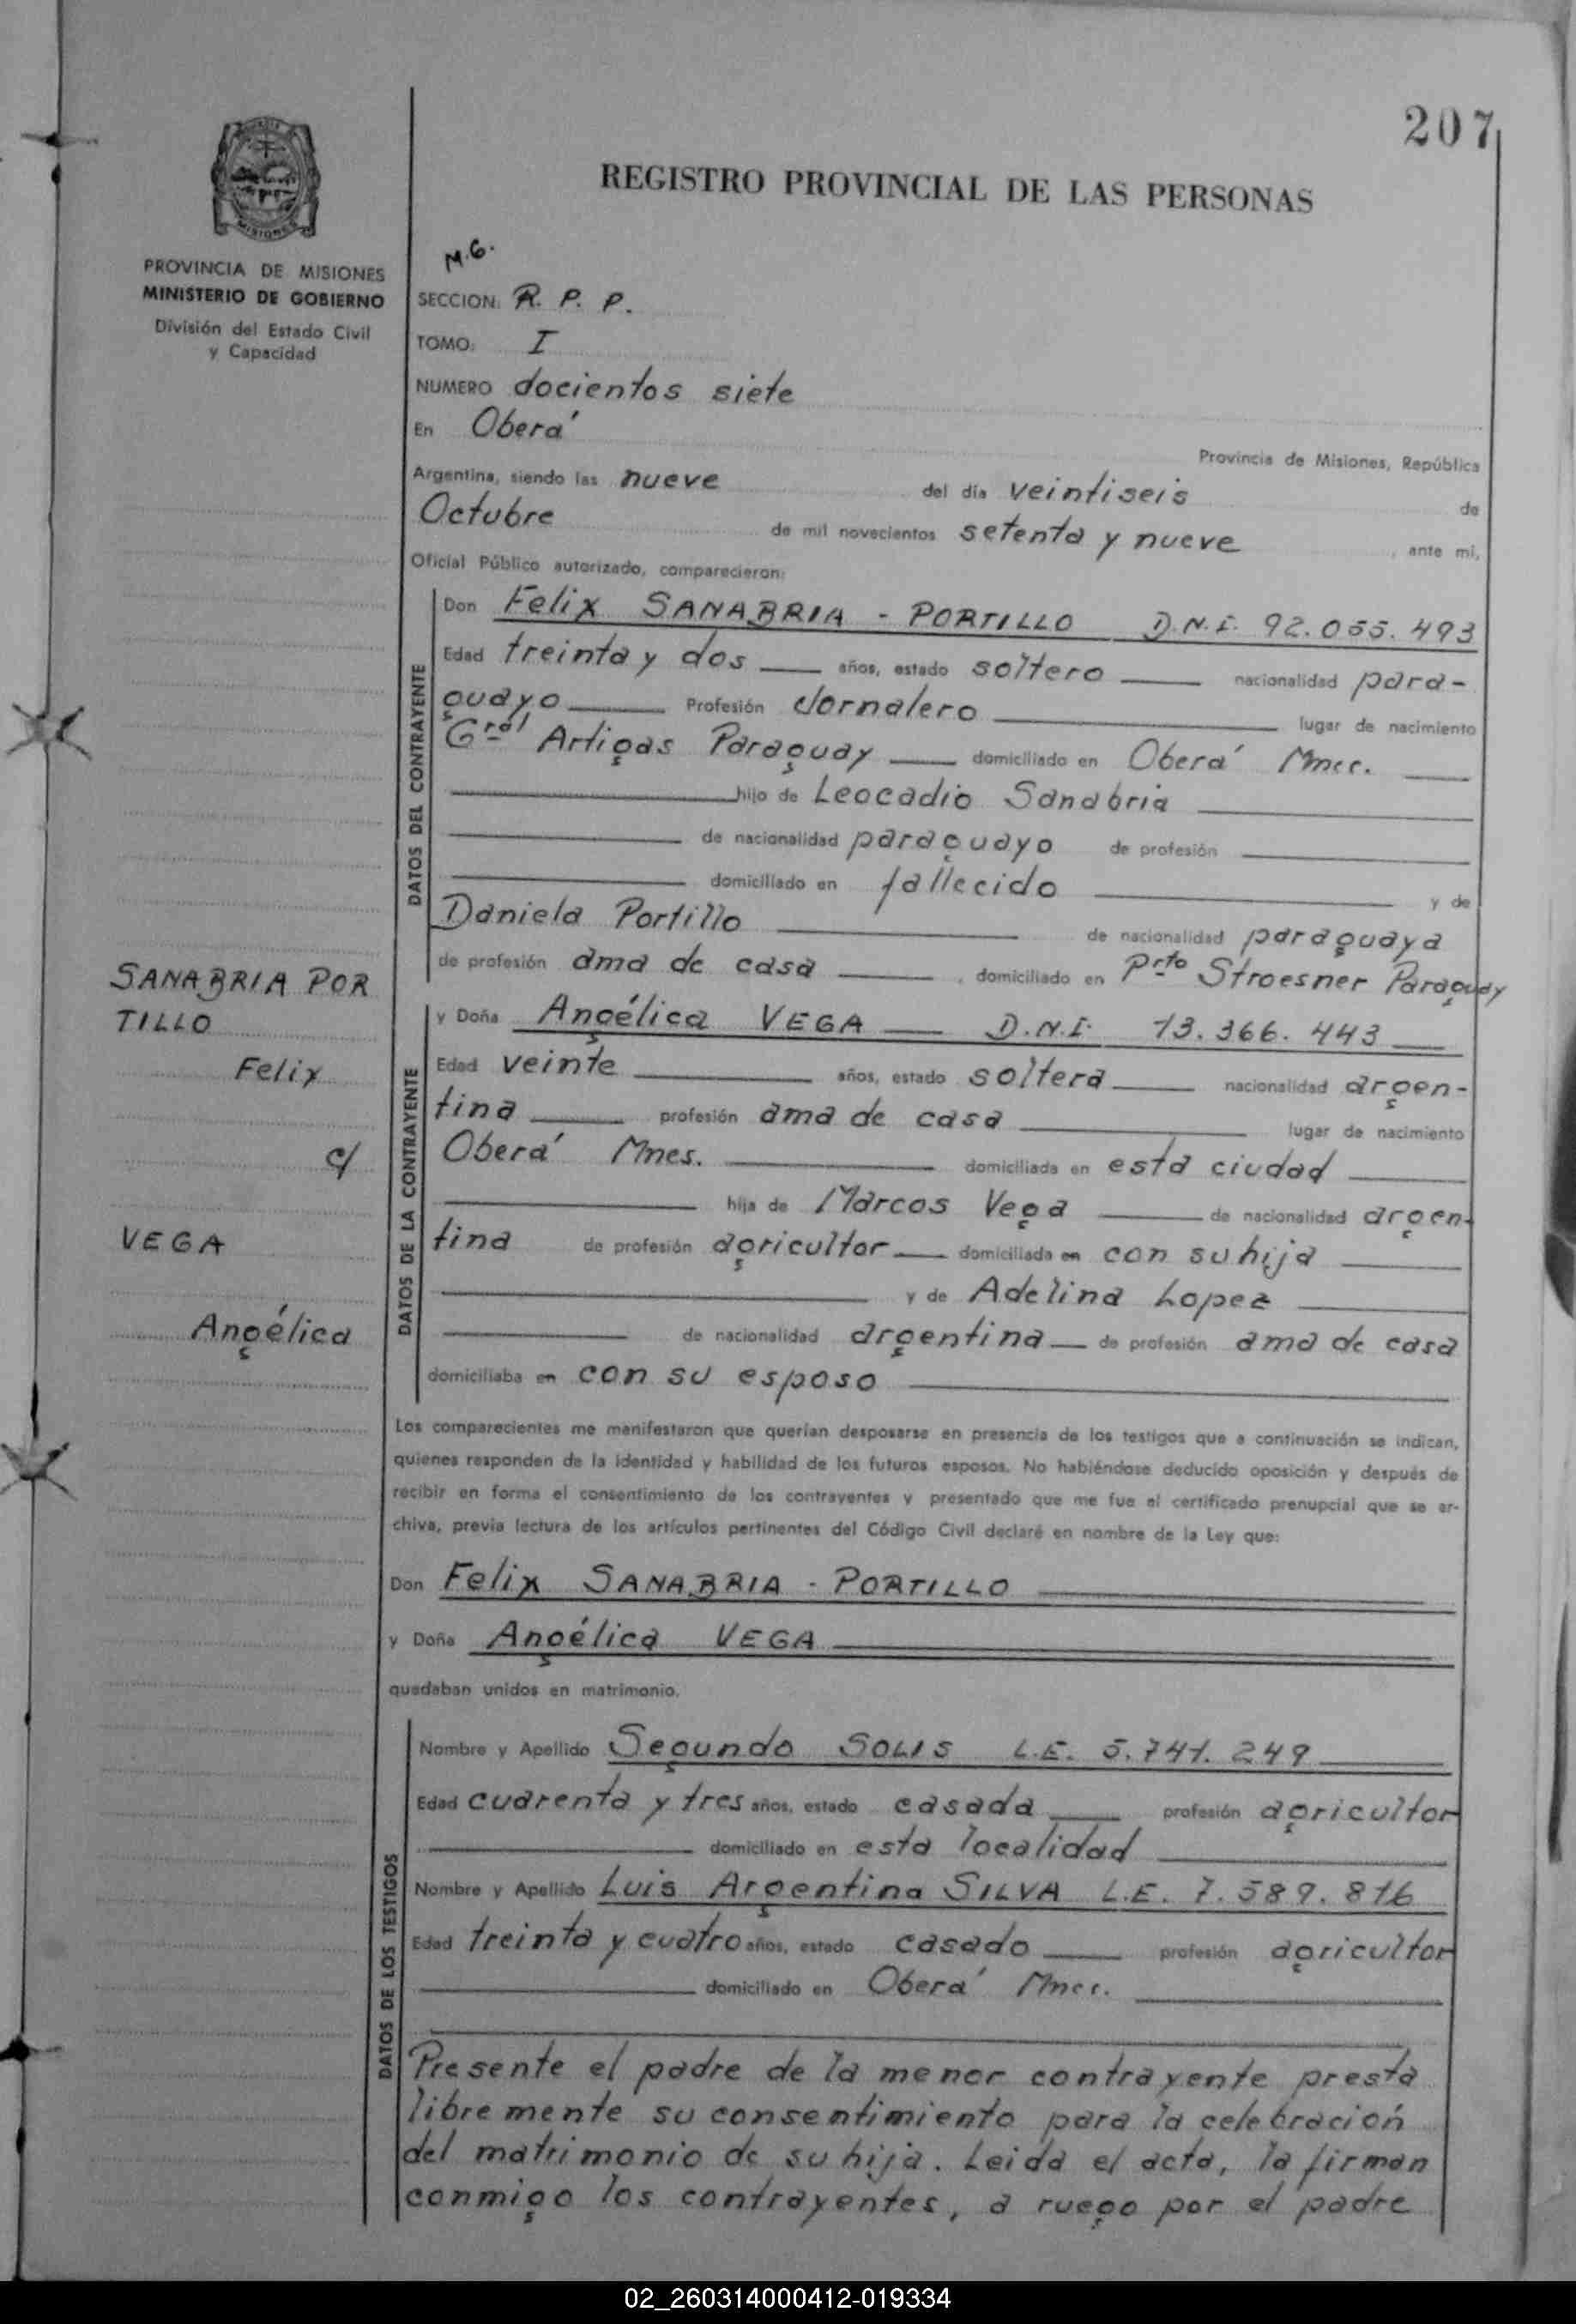 207
REGISTRO PROVINCIAL DE LAS PERSONAS
MISIONES
PROVINCIA DE MISIONES
MINISTERIO DE GOBIERNO
División del Estado Civil
y Capacidad
M.G.
SECCION: R. P. P.
TOMO: I
NUMERO docientos siete
En Oberá
Provincia de Misiones, República
Argentina, siendo las nueve del día veintiseis de
Octubre de mil novecientos setenta y nueve, ante mí,
Oficial Público autorizado, comparecieron:
DATOS DEL CONTRAYENTE
Don Felix SANABRIA - PORTILLO D.N.I. 92.055.493
Edad treinta y dos años, estado soltero nacionalidad para-
guayo Profesión Jornalero lugar de nacimiento
Gral Artigas Paraguay domiciliado en Oberá Mnes.
hijo de Leocadio Sanabria
de nacionalidad paraguayo de profesión
domiciliado en fallecido y de
Daniela Portillo de nacionalidad paraguaya
de profesión ama de casa, domiciliado en Prto Stroesner Paraguay
SANABRIA POR
TILLO
Felix
c/
VEGA
Angélica
DATOS DE LA CONTRAYENTE
y Doña Angélica VEGA D.N.I. 13.366.443
Edad veinte años, estado soltera nacionalidad argen-
tina profesión ama de casa lugar de nacimiento
Oberá Mnes. domiciliada en esta ciudad
hija de Marcos Vega de nacionalidad argen-
tina de profesión agricultor domiciliada en con su hija
y de Adelina Lopez
de nacionalidad argentina de profesión ama de casa
domiciliaba en con su esposo
Los comparecientes me manifestaron que querían desposarse en presencia de los testigos que a continuación se indican,
quienes responden de la identidad y habilidad de los futuros esposos. No habiéndose deducido oposición y después de
recibir en forma el consentimiento de los contrayentes y presentado que me fue el certificado prenupcial que se ar-
chiva, previa lectura de los artículos pertinentes del Código Civil declaré en nombre de la Ley que:
Don Felix SANABRIA - PORTILLO
y Doña Angélica VEGA
quedaban unidos en matrimonio.
DATOS DE LOS TESTIGOS
Nombre y Apellido Segundo SOLIS L.E. 5.741.249
Edad cuarenta y tres años, estado casada profesión agricultor
domiciliado en esta localidad
Nombre y Apellido Luis Argentina SILVA L.E. 7.589.816
Edad treinta y cuatro años, estado casado profesión agricultor
domiciliado en Oberá Mnes.
Presente el padre de la menor contrayente presta
libremente su consentimiento para la celebración
del matrimonio de su hija. Leida el acta, la firman
conmigo los contrayentes, a ruego por el padre
02_260314000412-019334